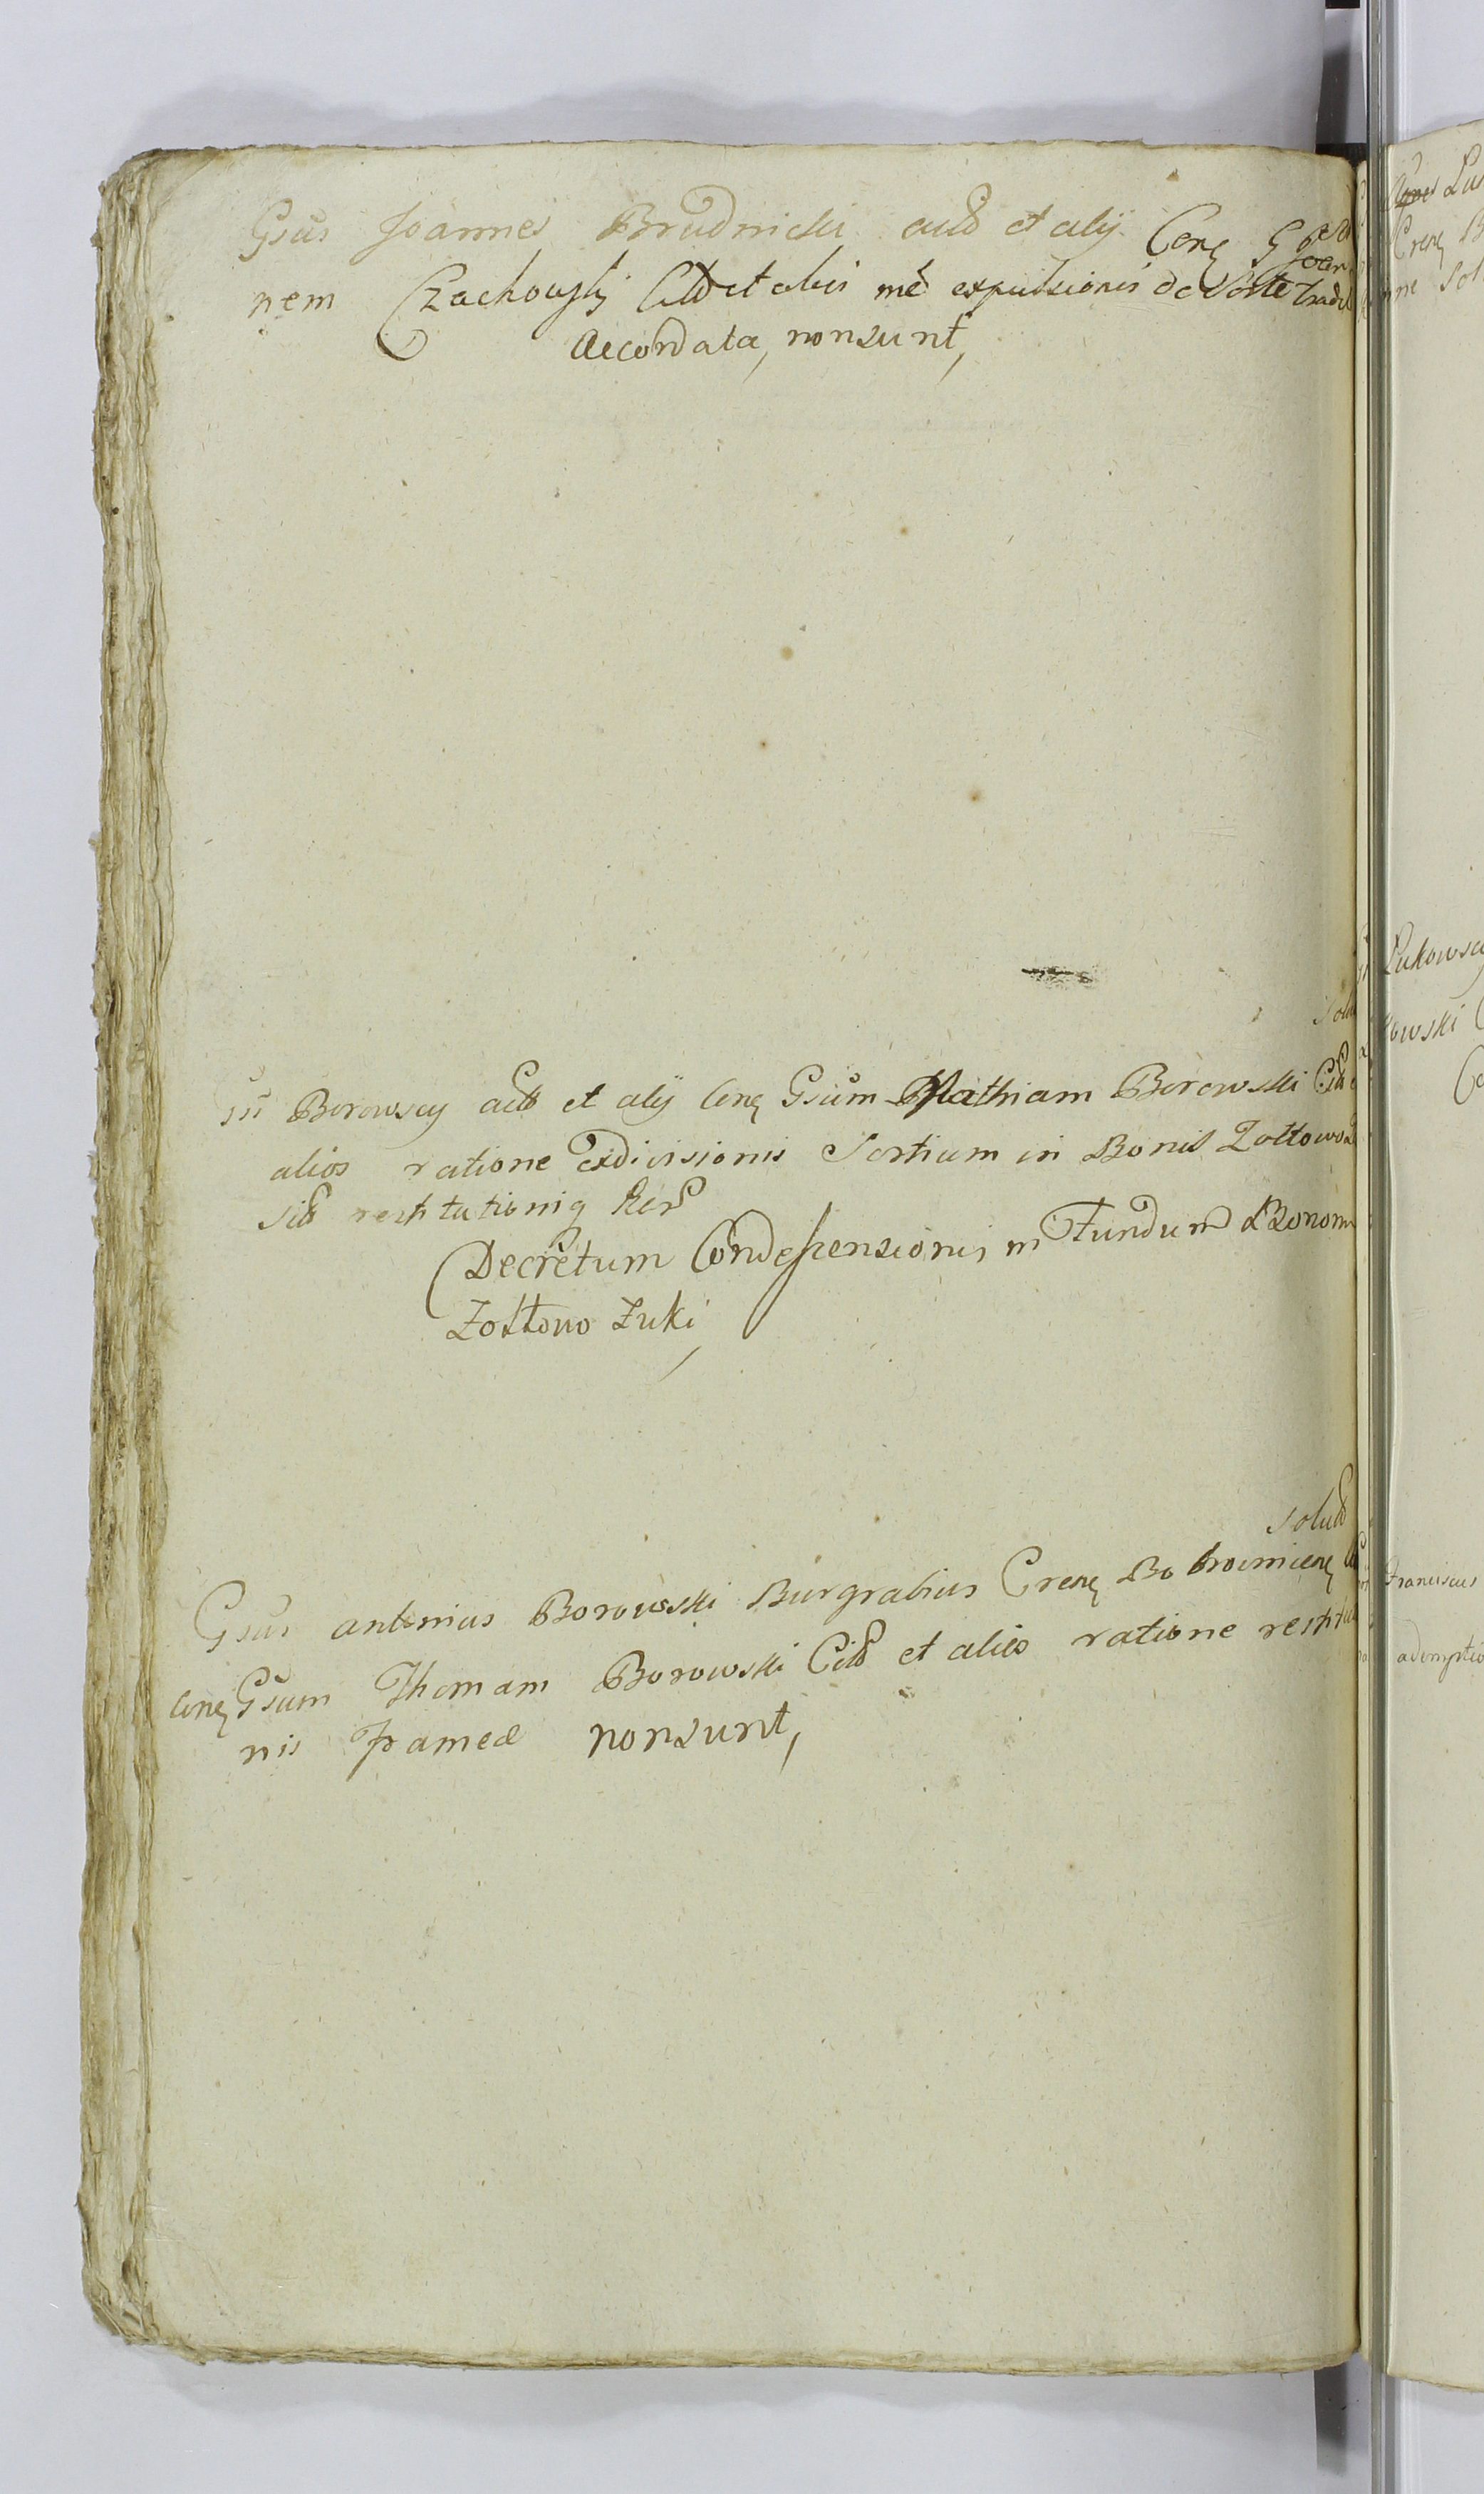 Gsus Joannes Brudnicki act et alij Conq G Joan
nem Czachowski Citt et alios me expulsionis de Sorte Trad
Accordata, non sunt,
Solu
sii Borowscy act et alij Conq Gsum Mathiam Borowski Citt
alios ratione exdivisionis Sortium in Bonis Zołtowo
sitt restitutionisq
Decretum Condescensionis in Fundum Bonorum
Zołtowo Zuki
Solutt
Gsus antonius Borowski Burgrabius Crenq Bobrownicenq
Conq Gsum Thomam Borowski Citt et alios ratione restitu
nis frameae non sunt,
Lu
Crenq B
ne Sol
Lukowscy
kowski C
Franciscus
ademptio